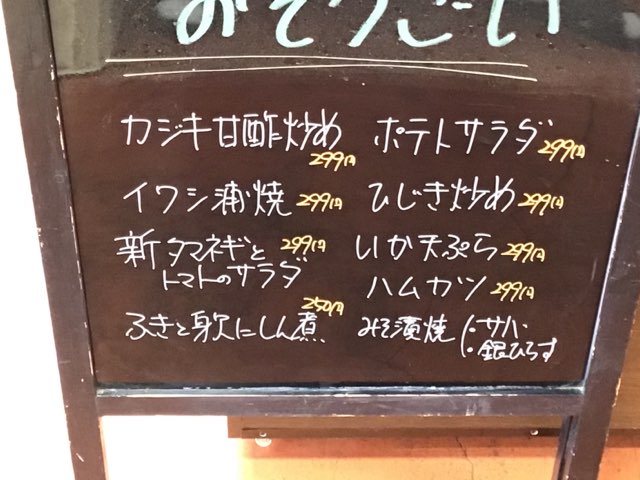 カジキ甘酢炒め 299円
イワシ蒲焼 299円
新タマネギと 299円
トマトのサラダ
250円
ふきと身欠にしん煮
ポテトサラダ 299円
ひじき炒め 299円
いか天ぷら 299円
ハムカツ 299円
みそ漬焼 ・サバ
・銀ひらす